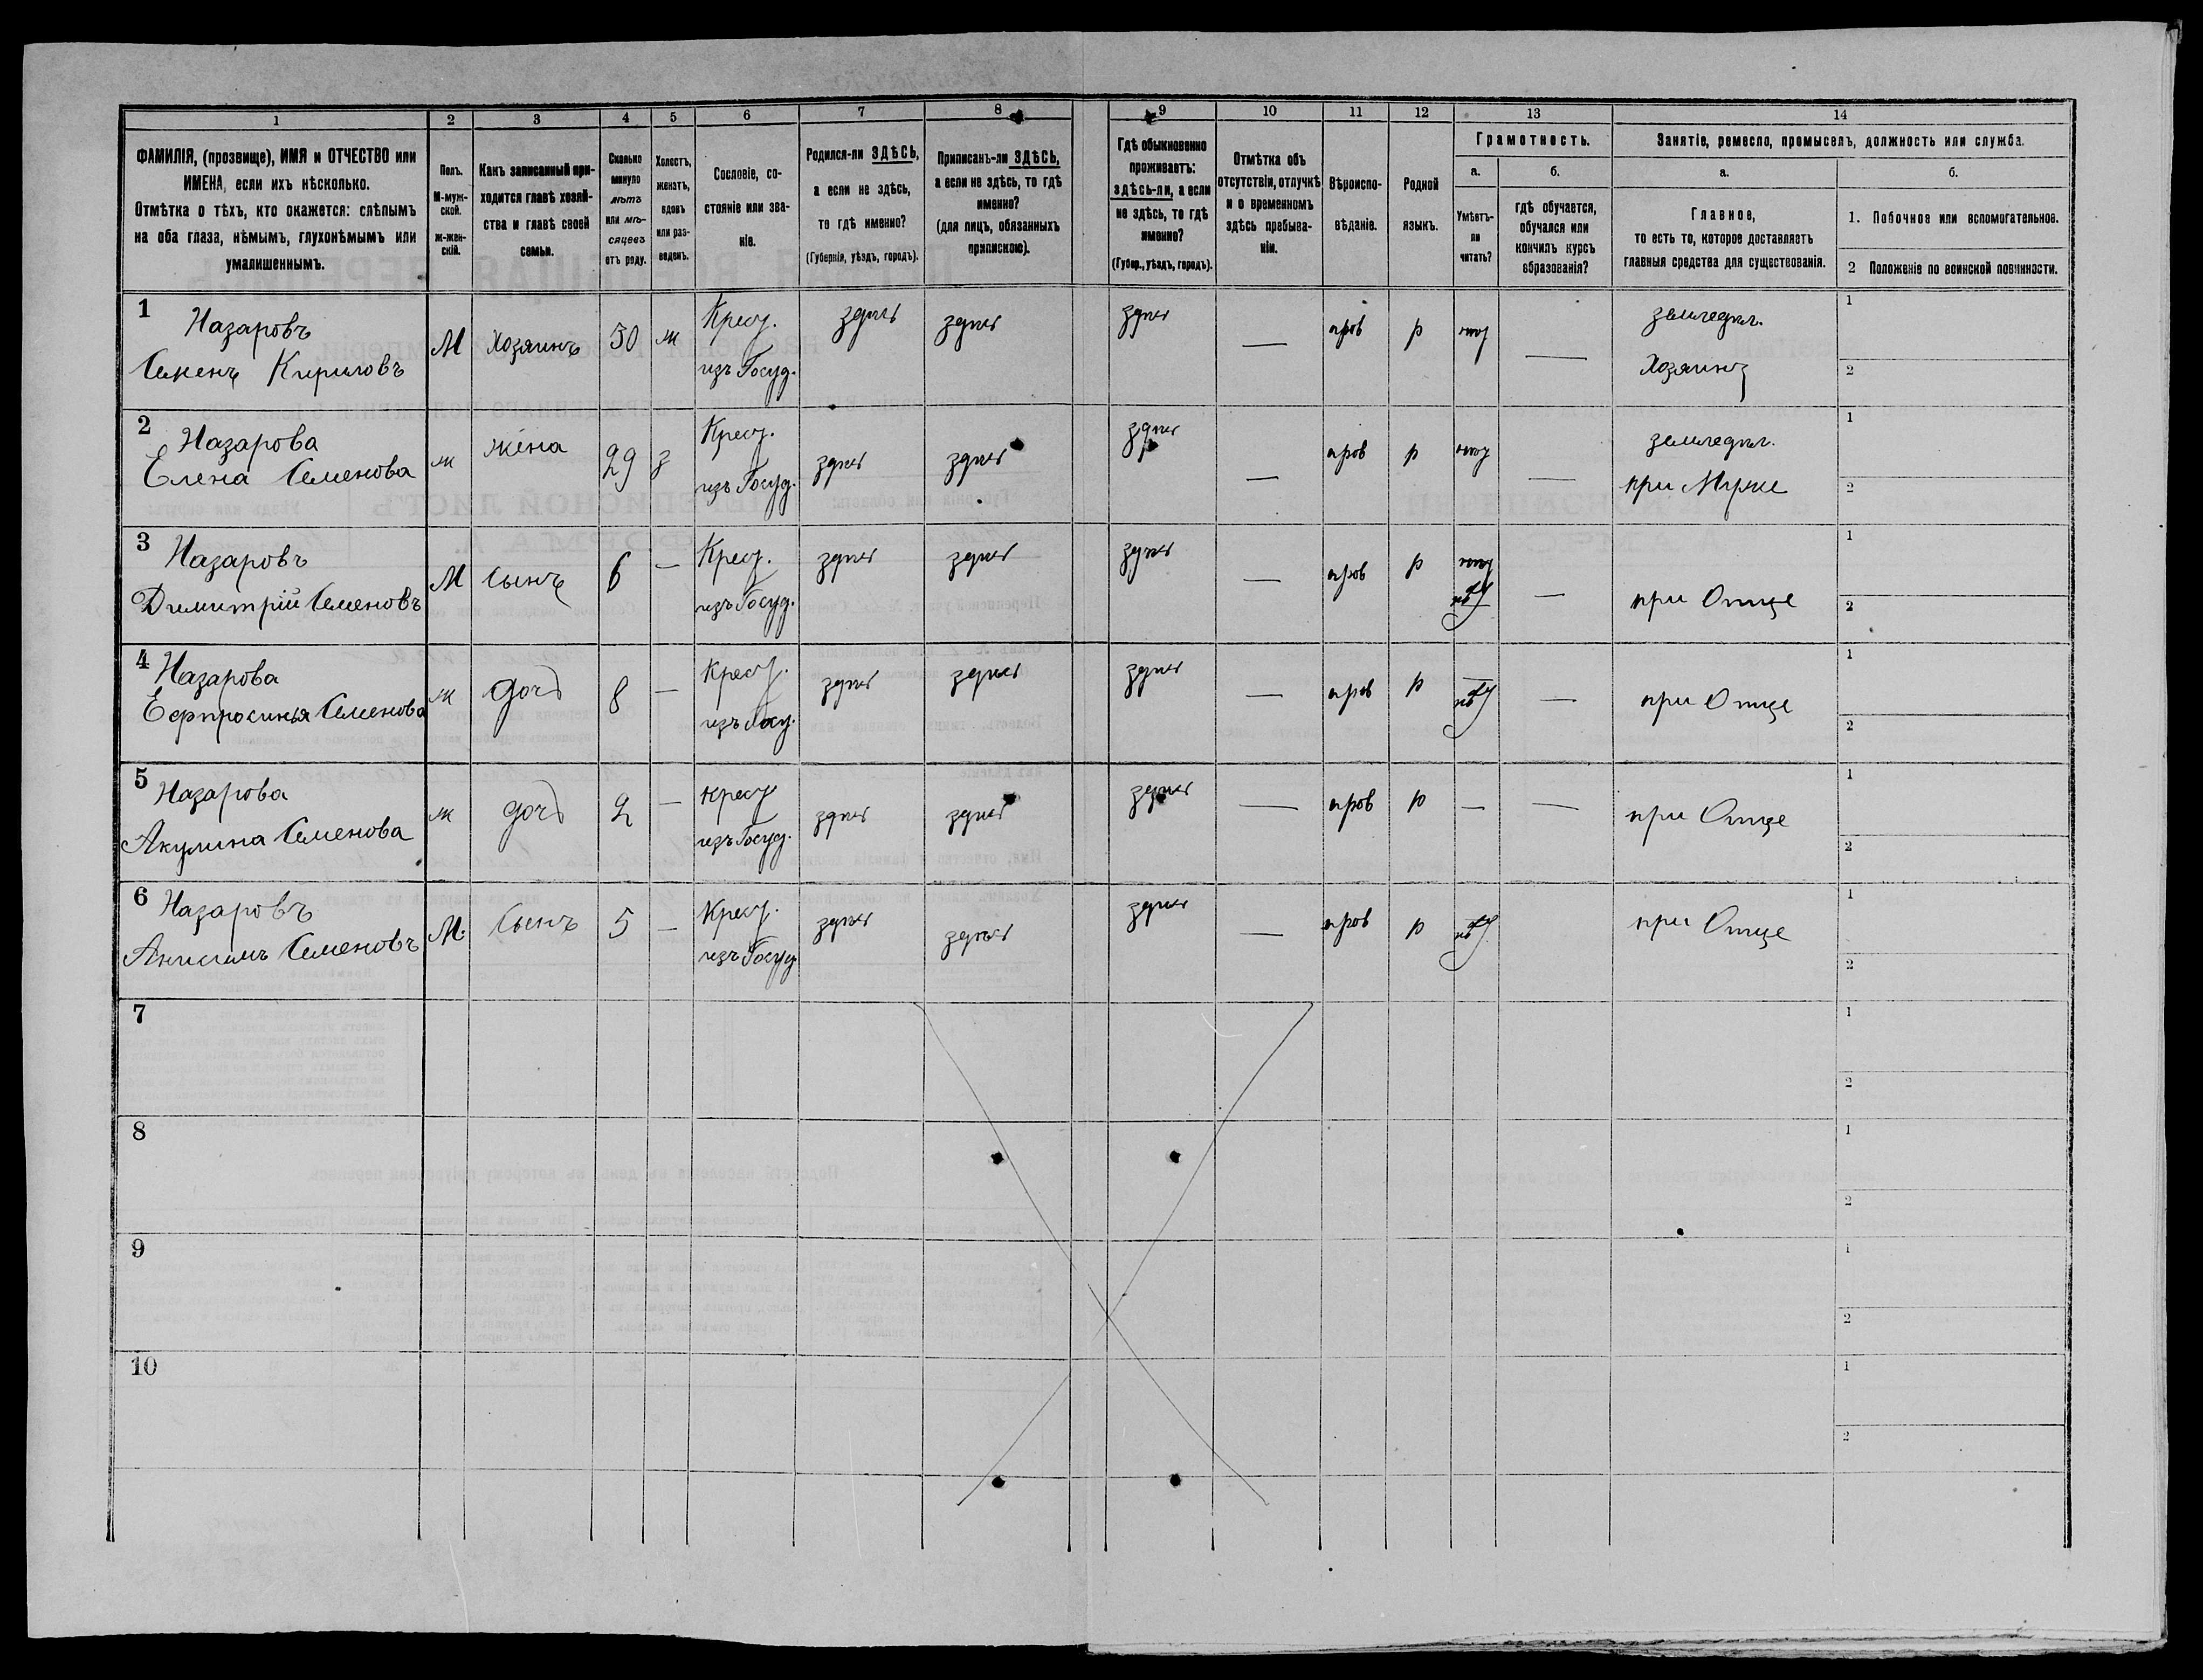 1 2 3 4 5 6 7 8 9 10 11 12 13 14
ФАМИЛІЯ, (прозвище), ИМЯ и ОТЧЕСТВО или
ИМЕНА, если ихъ нѣсколько.
Отмѣтка о тѣхъ, кто окажется: слѣпымъ
на оба глаза, нѣмымъ, глухонѣмымъ или
умалишеннымъ.
Полъ.
М-муж-
ской.
ж-жен-
скій.
Какъ записанный при-
ходится главѣ хозяй-
ства и главѣ своей
семьи.
Сколько
минуло
лѣтъ
или мѣ-
сяцевъ
отъ роду.
Холостъ,
женатъ,
вдовъ
или раз-
веденъ.
Сословіе, со-
стояніе или зва-
ніе.
Родился-ли ЗДѢСЬ,
а если не здѣсь,
то гдѣ именно?
(Губернія, уѣздъ, городъ).
Приписанъ-ли ЗДѢСЬ,
а если не здѣсь, то гдѣ
именно?
(для лицъ, обязанныхъ
припискою).
Гдѣ обыкновенно
проживаетъ:
здѣсь-ли, а если
не здѣсь, то гдѣ
именно?
(Губер., уѣздъ, городъ).
Отмѣтка объ
отсутствіи, отлучкѣ
и о временномъ
здѣсь пребыва-
ніи.
Вѣроиспо-
вѣданіе.
Родной
языкъ.
Грамотность.
а.
Умѣетъ-
ли
читать?
б.
гдѣ обучается,
обучался или
кончилъ курсъ
образованія?
Занятіе, ремесло, промыселъ, должность или служба.
а.
Главное,
то есть то, которое доставляетъ
главныя средства для существованія.
б.
1. Побочное или вспомогательное.
2 Положеніе по воинской повинности.
1 Назаровъ
Семенъ Кириловъ
М Хозяинъ 30 ж
Крест.
изъ Госуд.
здѣсь здѣсь здѣсь — пров р нѣт —
земледѣл.
Хозяинъ
1
2
2 Назарова
Елена Семенова
ж жена 29 з
Крест.
изъ Госуд.
здѣсь здѣсь здѣсь — пров р нѣт —
земледѣл.
при Мужѣ
1
2
3 Назаровъ
Димитрій Семеновъ
М Сынъ 6 —
Крест.
изъ Госуд.
здѣсь здѣсь здѣсь — пров р —
при Отцѣ
1
2
4 Назарова
Ефросинья Семенова
ж дочь 8 —
Крест.
изъ Госу.
здѣсь здѣсь здѣсь — пров р —
при Отцѣ
1
2
5 Назарова
Акулина Семенова
ж дочь 2 —
Крест
изъ Госуд.
здѣсь здѣсь здѣсь — пров р — —
при Отцѣ
1
2
6 Назаровъ
Анисимъ Семеновъ
М. Сынъ 5 —
Крест.
изъ Госуд
здѣсь здѣсь здѣсь — пров р
при Отцѣ
1
2
7
1
2
8
1
2
9
1
2
10
1
2